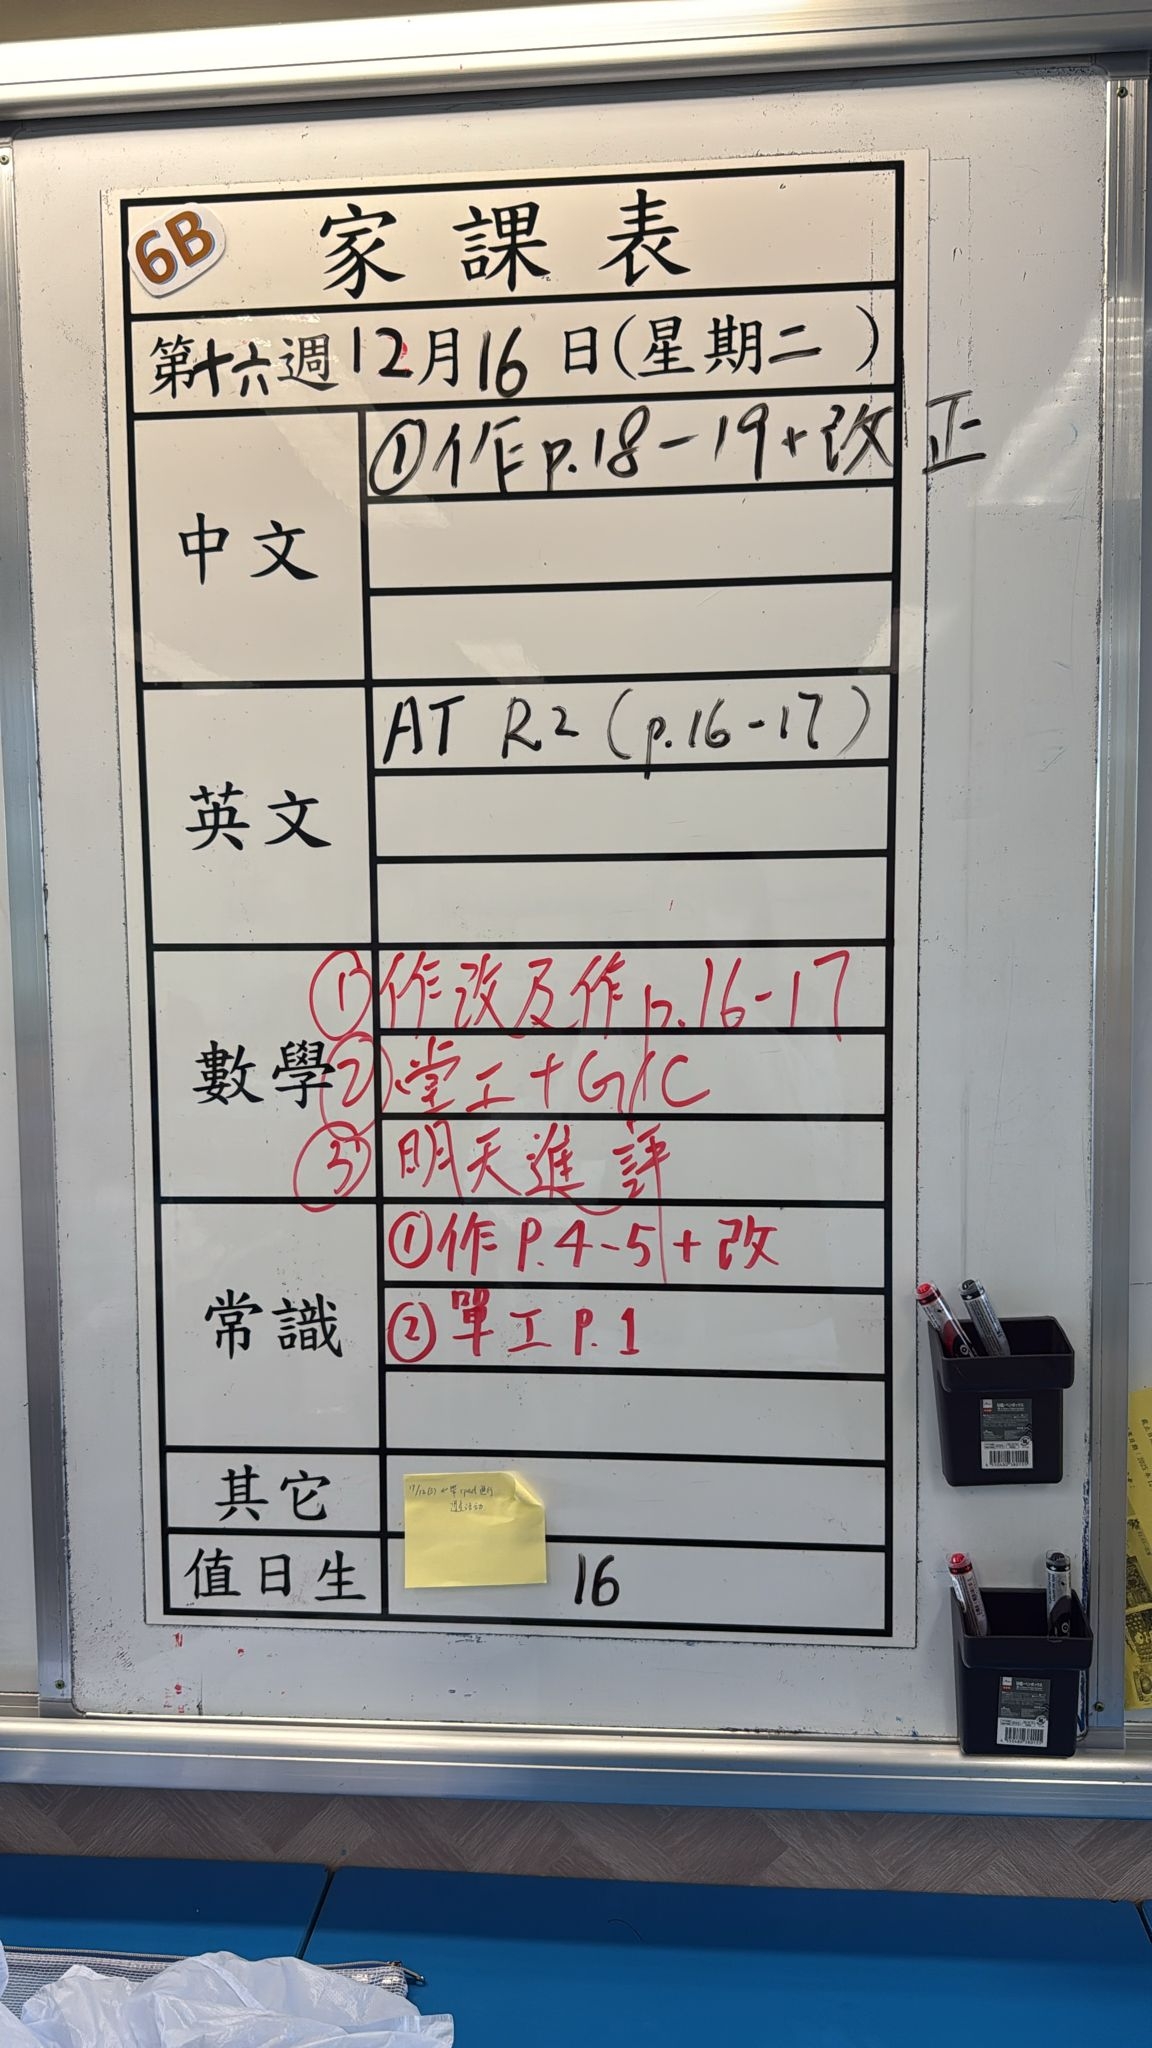 6B
家課表
第十六週12月16日(星期二)
中文
①作p.18-19+改正
英文
AT R2 (p.16-17)
數學
①作改及作p.16-17
②堂工+G/C
③明天進評
常識
①作P.4-5+改
②單工P.1
其它
17/12(3)
ipad進行
活動
值日生
16